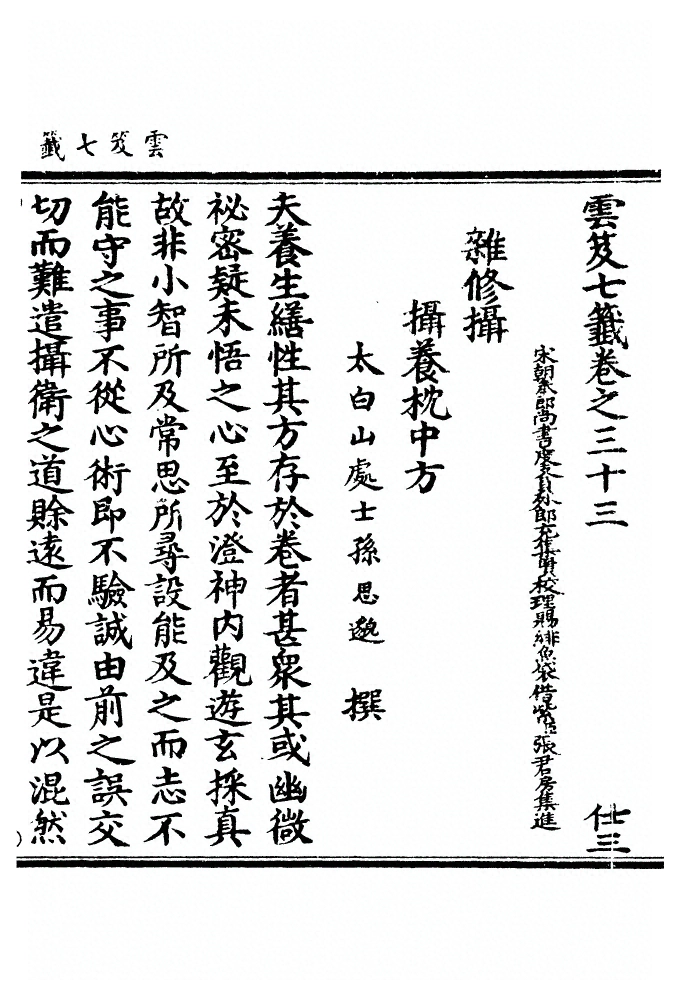 雲笈七籤
雲笈七籤卷之三十三 仕三
宋朝奉郎尚書度支員外郎充集賢校理賜緋魚袋借紫臣張君房集進
雜修攝
攝養枕中方
太白山處士孫思邈 撰
夫養生繕性其方存於卷者甚衆其或幽微
祕密疑未悟之心至於澄神內觀遊玄採真
故非小智所及常思所尋設能及之而志不
能守之事不從心術即不驗誠由前之誤交
切而難遣攝衛之道賒遠而易違是以混然